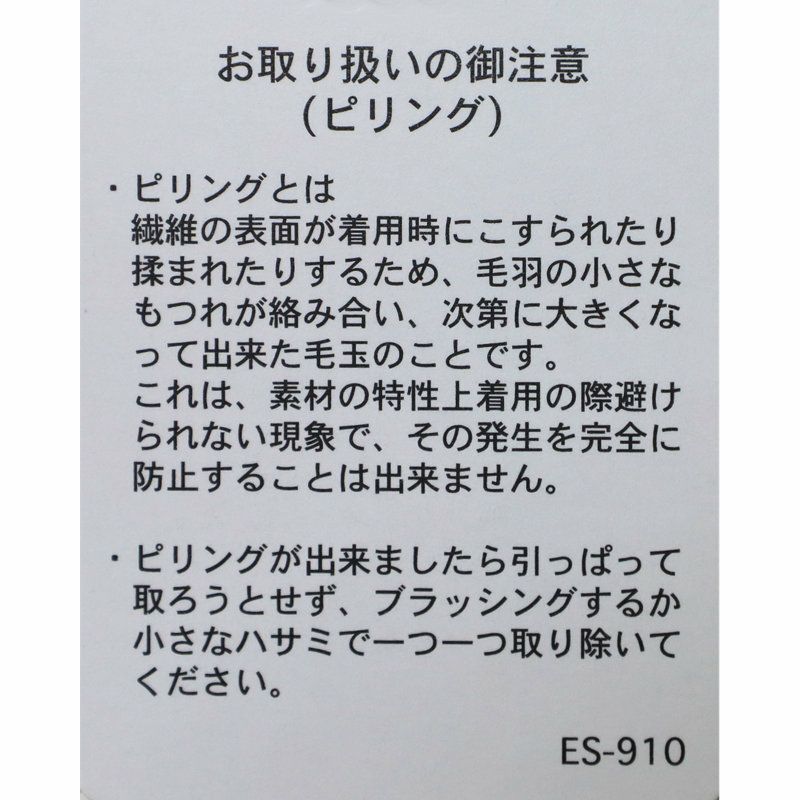 お取り扱いの御注意
(ピリング)
・ピリングとは
繊維の表面が着用時にこすられたり
揉まれたりするため、毛羽の小さな
もつれが絡み合い、次第に大きくな
って出来た毛玉のことです。
これは、素材の特性上着用の際避け
られない現象で、その発生を完全に
防止することは出来ません。
・ピリングが出来ましたら引っぱって
取ろうとせず、ブラッシングするか
小さなハサミで一つ一つ取り除いて
ください。
ES-910